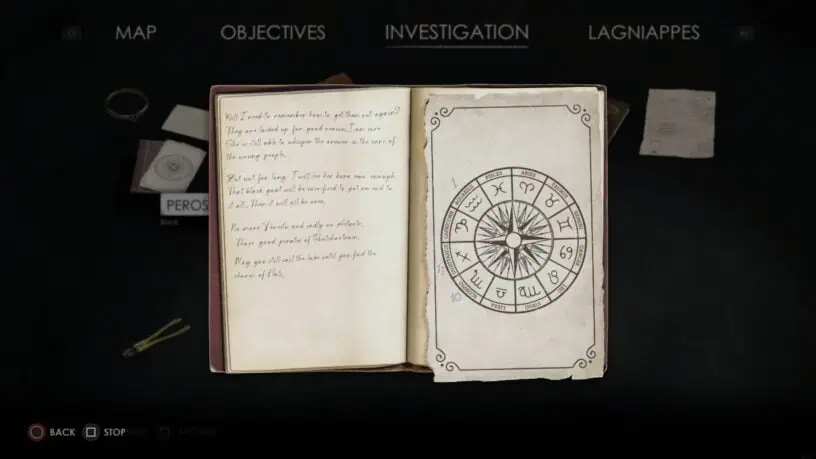 MAP
OBJECTIVES
INVESTIGATION
LAGNIAPPES
Will I need to remember how to get them out again?
They are locked up for good reason, I am sure
She is still able to whisper the answer in the ears of
the wrong people.
But not for long. I will see her burn soon enough.
That black goat will be sacrificed to put an end to
it all. Then it will all be over.
No more and sadly no
Those good pirates of
May you still sail the lake until you find the
shores of
PEROS
1
11
10
PISCES
ARIES
TAURUS
GEMINI
CANCER
LEO
VIRGO
LIBRA
SCORPIO
SAGITTARIUS
CAPRICORN
AQUARIUS
BACK
STOP